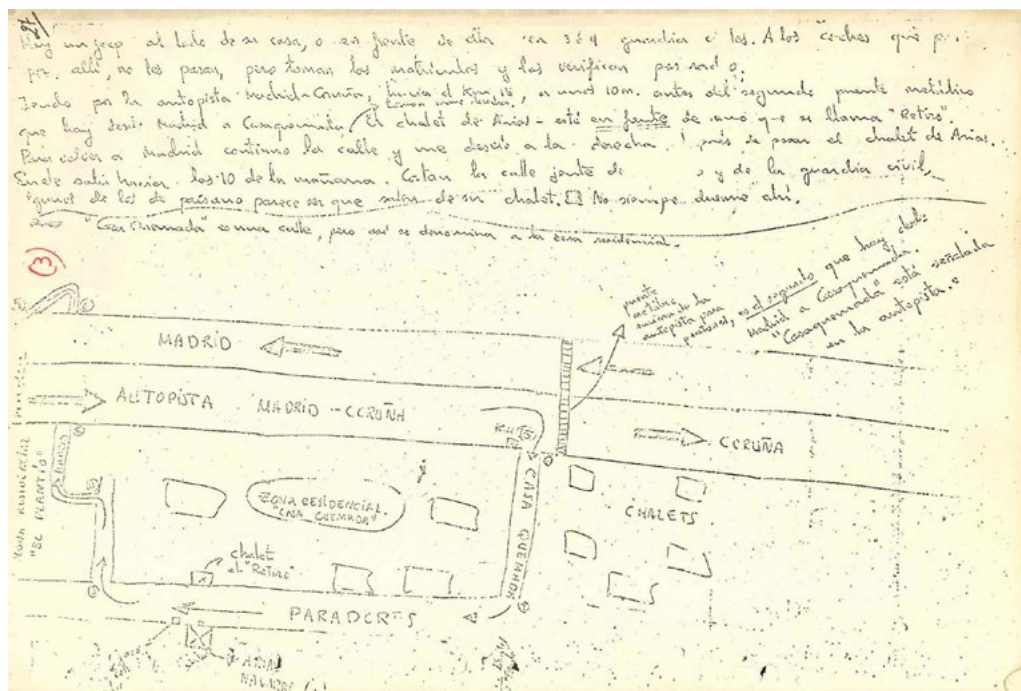 Hay un jeep al lado de su casa, o en frente de ella con 3 ó 4 guardia civiles. A los coches que p.
por allí, no les paran, pero toman las matrículas y las verifican por radio.
Yendo por la autopista Madrid-Coruña, hacia el Km. 15, a unos 10m. antes del segundo puente metálico
que hay desde Madrid a Casaquemada. El chalet de Arias - está en frente de uno que se llama "Retiro".
Para volver a Madrid continuo la calle y me desvío a la derecha, después de pasar el chalet de Arias.
Suele salir hacia las 10 de la mañana. Cortan la calle gente de y de la guardia civil,
algunos de los de paisano parece ser que salen de su chalet. El No siempre duerme ahí.
"Casa Quemada" es una calle, pero así se denomina a la zona residencial.
3
puente metálico encima de la autopista para peatones, es el segundo que hay desde
Madrid a Casaquemada.
"Casaquemada" está señalada
en la autopista.
MADRID
AUTOPISTA MADRID-CORUÑA
CORUÑA
ZONA RESIDENCIAL
"EL PLANTÍO"
ZONA RESIDENCIAL
"CASA QUEMADA"
CASA QUEMADA
CHALETS
chalet
el "Retiro"
PARADORES
ARIAS
NAVARRO